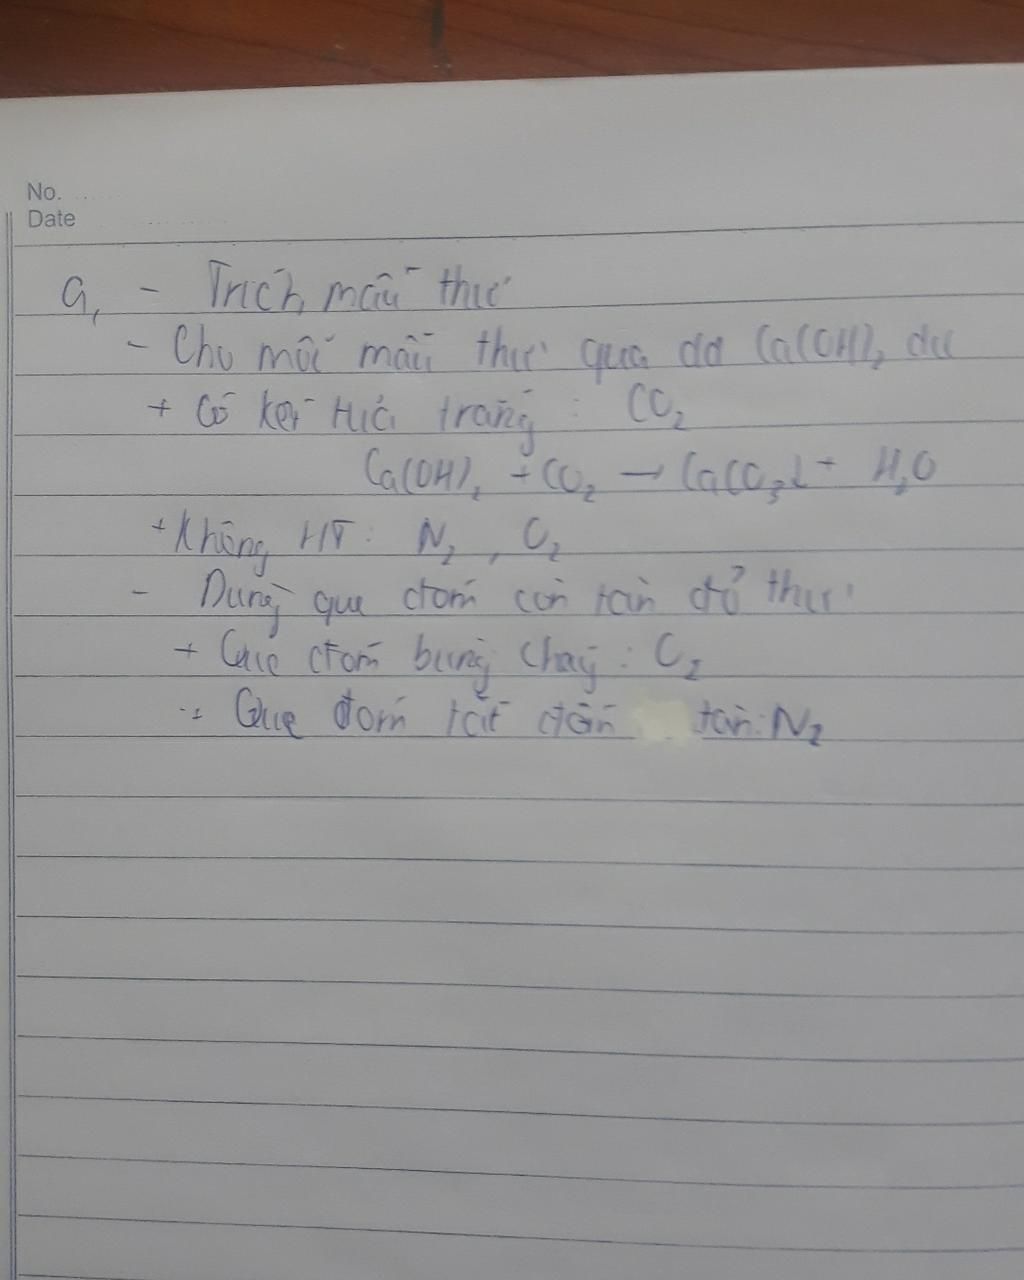 No.
Date
a, - Trích mẫu thử
- Cho mỗi mẫu thử qua dd Ca(OH)₂ dư
+ Có kết tủa trắng : CO₂
Ca(OH)₂ + CO₂ → CaCO₃↓ + H₂O
+ Không HT : N₂ , O₂
- Dùng que đóm còn tàn đỏ thử
+ Que đóm bùng cháy : O₂
+ Que đóm tắt dần tàn: N₂